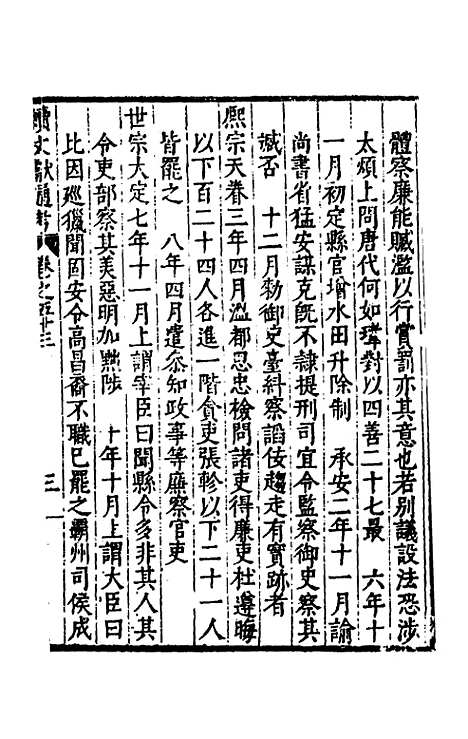 體察廉能贓濫以行賞罰亦其意也若別議設法恐涉
太煩上問唐代何如瑋對以四善二十七最　六年十
一月初定縣官增水田升除制　承安二年十一月諭
尚書省猛安謀克旣不隸提刑司宜令監察御史察其
臧否　十二月勅御史臺糾察諂佞趨走有實跡者
熈宗天眷三年四月溫都忍忠檢問諸吏得廉吏杜遵晦
以下百二十四人各進一階貪吏張軫以下二十一人
皆罷之　八年四月遣叅知政事等廉察官吏
世宗大定七年十一月上謂宰臣曰聞縣令多非其人其
令吏部察其美惡明加黜陟　十年十月上謂大臣曰
比因廵獵聞固安令高昌裔不職已罷之霸州司侯成
續文獻通考　卷之五十三　三